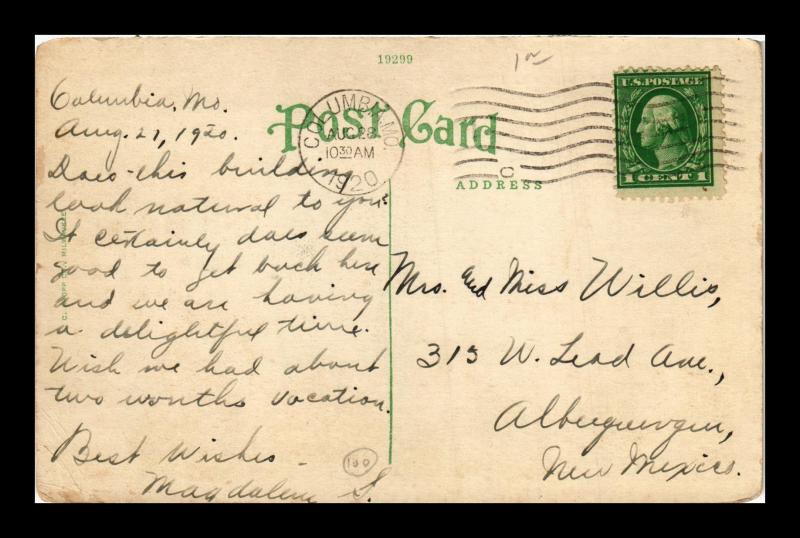 19299
1 00
Post Card
COLUMBIA, MO.
AUG 28
10 30 AM
1920
C
U.S. POSTAGE
1 CENT 1
ADDRESS
Columbia, Mo.
Aug. 27, 1920.
Does this building
look natural to you?
It certainly does seem
good to get back here
and we are having
a delightful time.
Wish we had about
two months vacation.
Best Wishes -
Magdalene S.
100
Mrs. and Miss Willis,
315 W. Lead Ave.,
Albuquerque,
New Mexico.